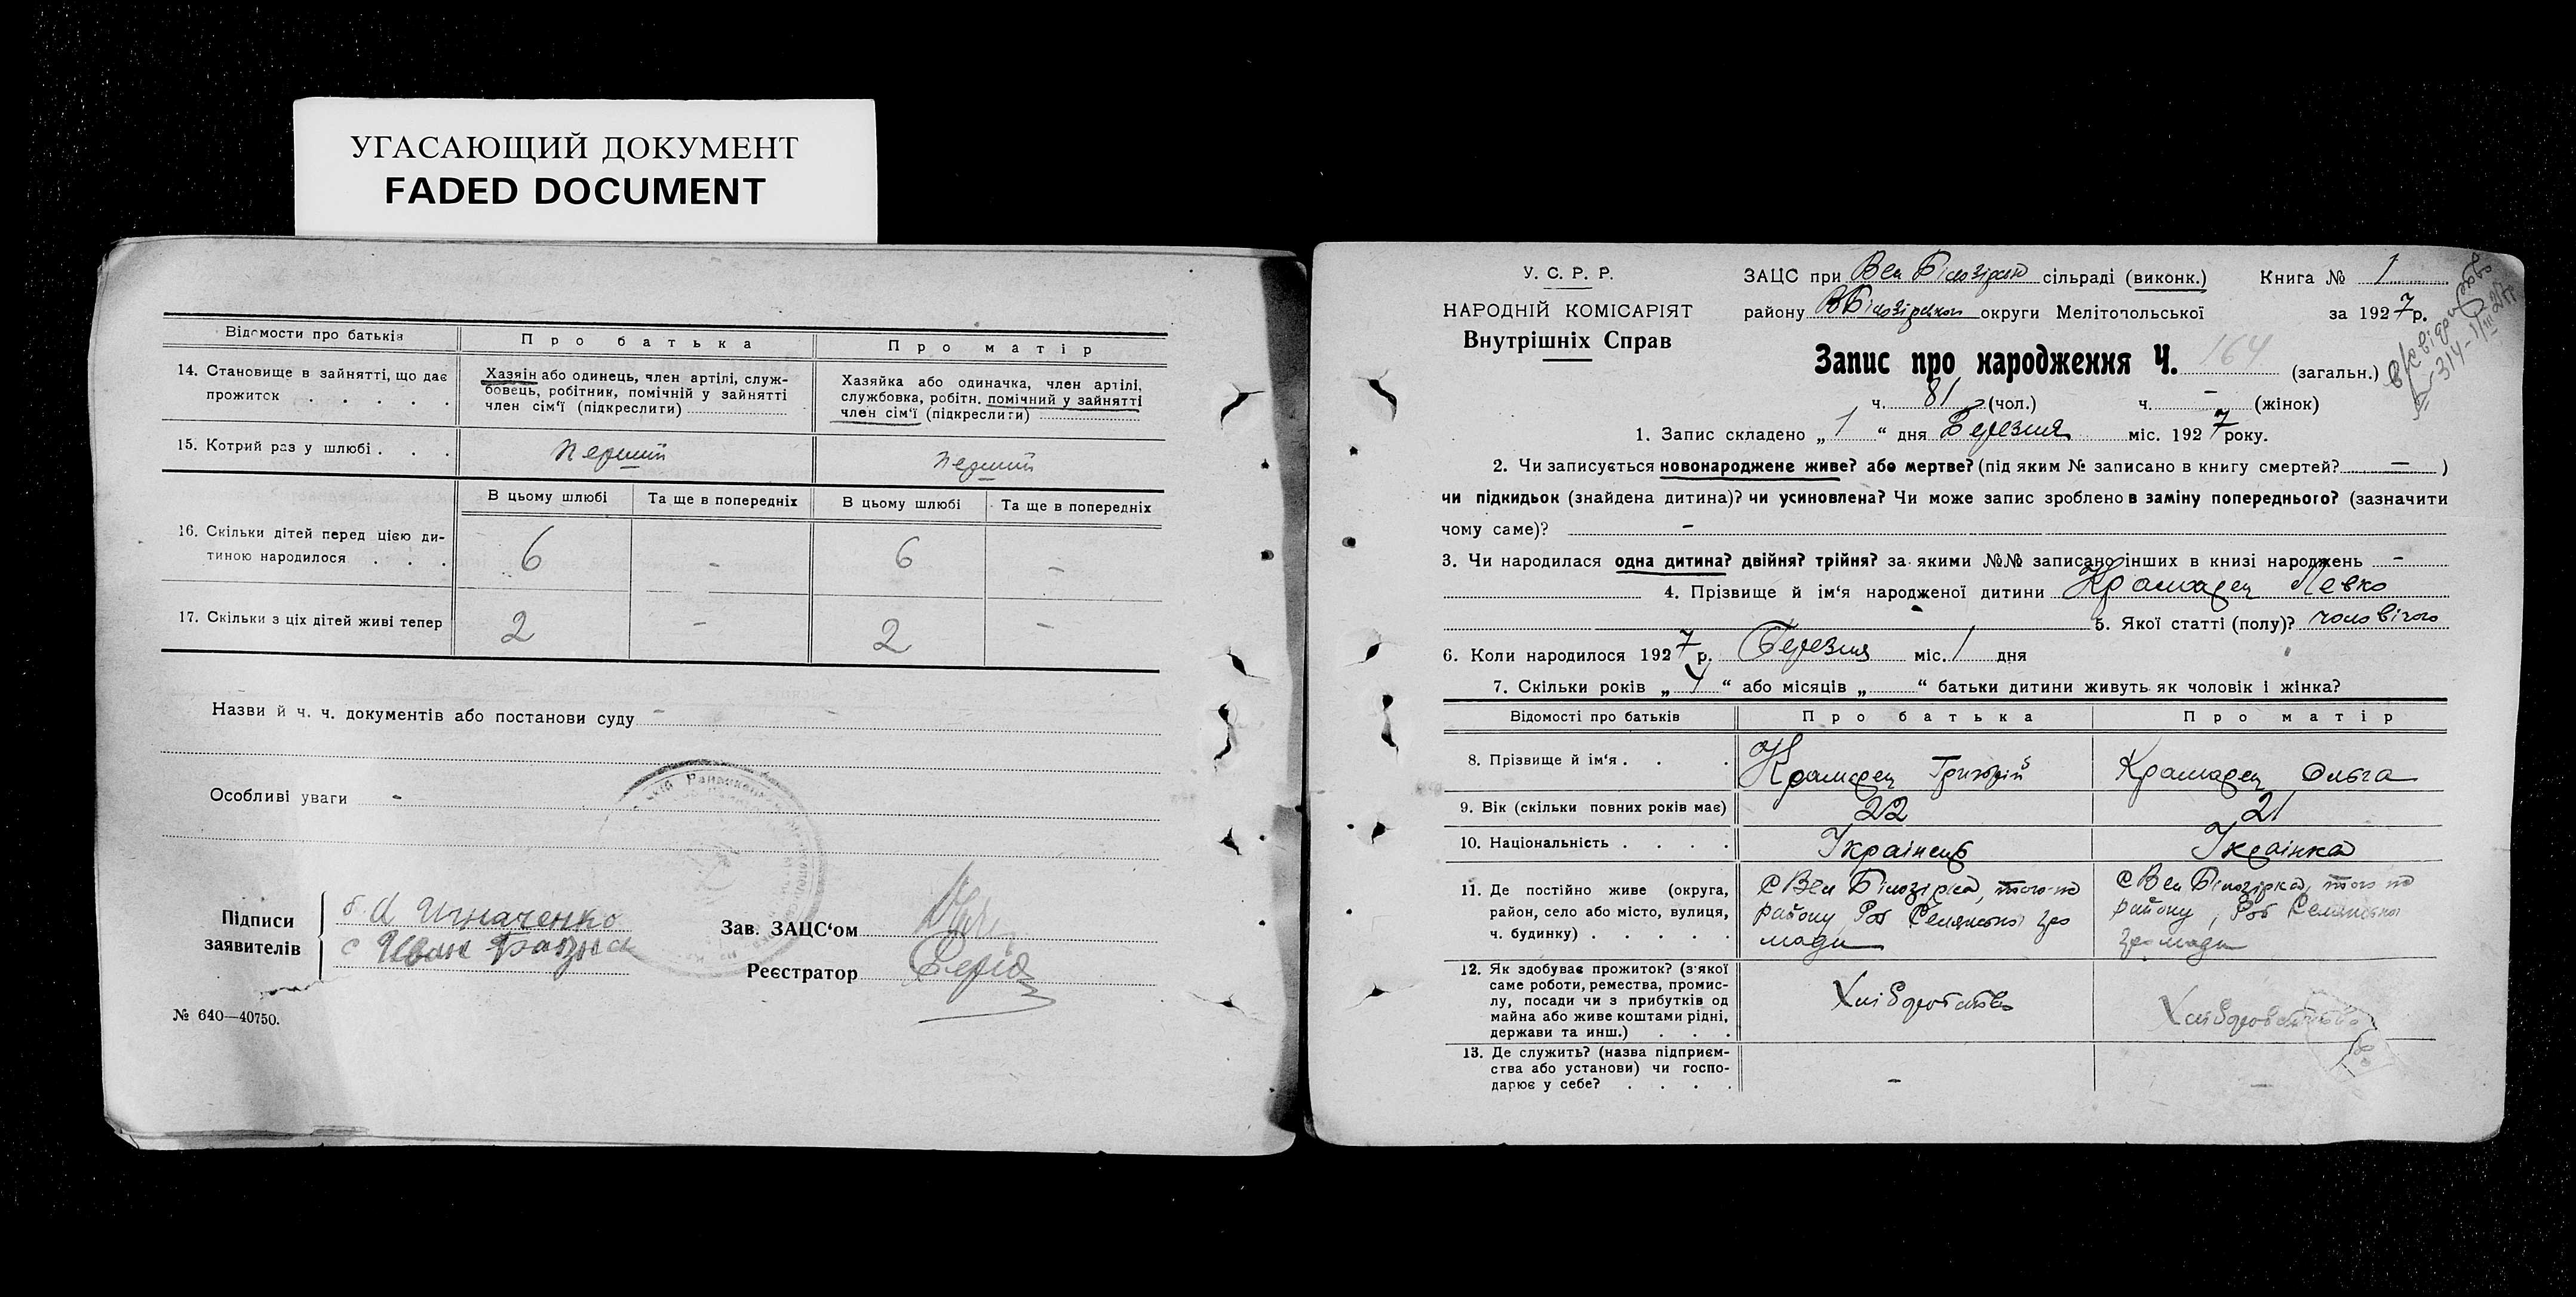 УГАСАЮЩИЙ ДОКУМЕНТ
FADED DOCUMENT
Відомости про батьків
Про батька
Про матір
14. Становище в зайнятті, що дає прожиток . . . . .
Хазяїн або одинець, член артілі, служ-
бовець, робітник, помічній у зайнятті
член сім'ї (підкреслити)
Хазяйка або одиначка, член артілі,
службовка, робітн. помічний у зайнятті
член сім'ї (підкреслити)
15. Котрий раз у шлюбі . . .
перший
перший
В цьому шлюбі
Та ще в попередніх
В цьому шлюбі
Та ще в попередніх
16. Скільки дітей перед цією ди-
тиною народилося . . .
6 - 6 -
17. Скільки з ціх дітей живі тепер
2 - 2 -
Назви й ч. ч. документів або постанови суду -
Особливі уваги -
Підписи
заявителів
Игначенко
Иван
Зав. ЗАЦС'ом
Реєстратор
№ 640—40750.
У. С. Р. Р.
НАРОДНІЙ КОМІСАРІЯТ
Внутрішніх Справ
ЗАЦС при Вел Білозірск сільраді (виконк.)
Книга № 1
району ВБілозірського округи Мелітопольської
за 1927 р.
Запис про народження Ч. 164 (загальн.)
314
ч. 81 (чол.) ч. - (жінок)
1. Запис складено „1“ дня Березня міс. 1927 року.
2. Чи записується новонароджене живе? або мертве? (під яким № записано в книгу смертей? — )
чи підкидьок (знайдена дитина)? чи усиновлена? Чи може запис зроблено в заміну попереднього? (зазначити
чому саме)? -
3. Чи народилася одна дитина? двійня? трійня? за якими №№ записано інших в книзі народжень -
4. Прізвище й ім'я народженої дитини Крамарец Левко
5. Якої статті (полу)? чоловічого
6. Коли народилося 1927 р. Березня міс. 1 дня
7. Скільки років „ 1 “ або місяців „ “ батьки дитини живуть як чоловік і жінка?
Відомості про батьків
Про батька
Про матір
8. Прізвище й ім'я . . .
Крамарец Григорій
Крамарец Ольга
9. Вік (скільки повних років має)
22
21
10. Національність . . . .
Українець
Українка
11. Де постійно живе (округа,
район, село або місто, вулиця,
ч. будинку) . . . . .
с Вел Білозірка, того-ж
району, Роб Селянської гро
мади
с Вел Білозірка, того ж
району, Роб Селянської
громади
12. Як здобуває прожиток? (з якої
саме роботи, ремества, промис-
лу, посади чи з прибутків од
майна або живе коштами рідні,
держави та инш.) . . .
Хліборобство
Хліборобство
13. Де служить? (назва підприєм-
ства або установи) чи госпо-
дарює у себе? . . . .
-
—